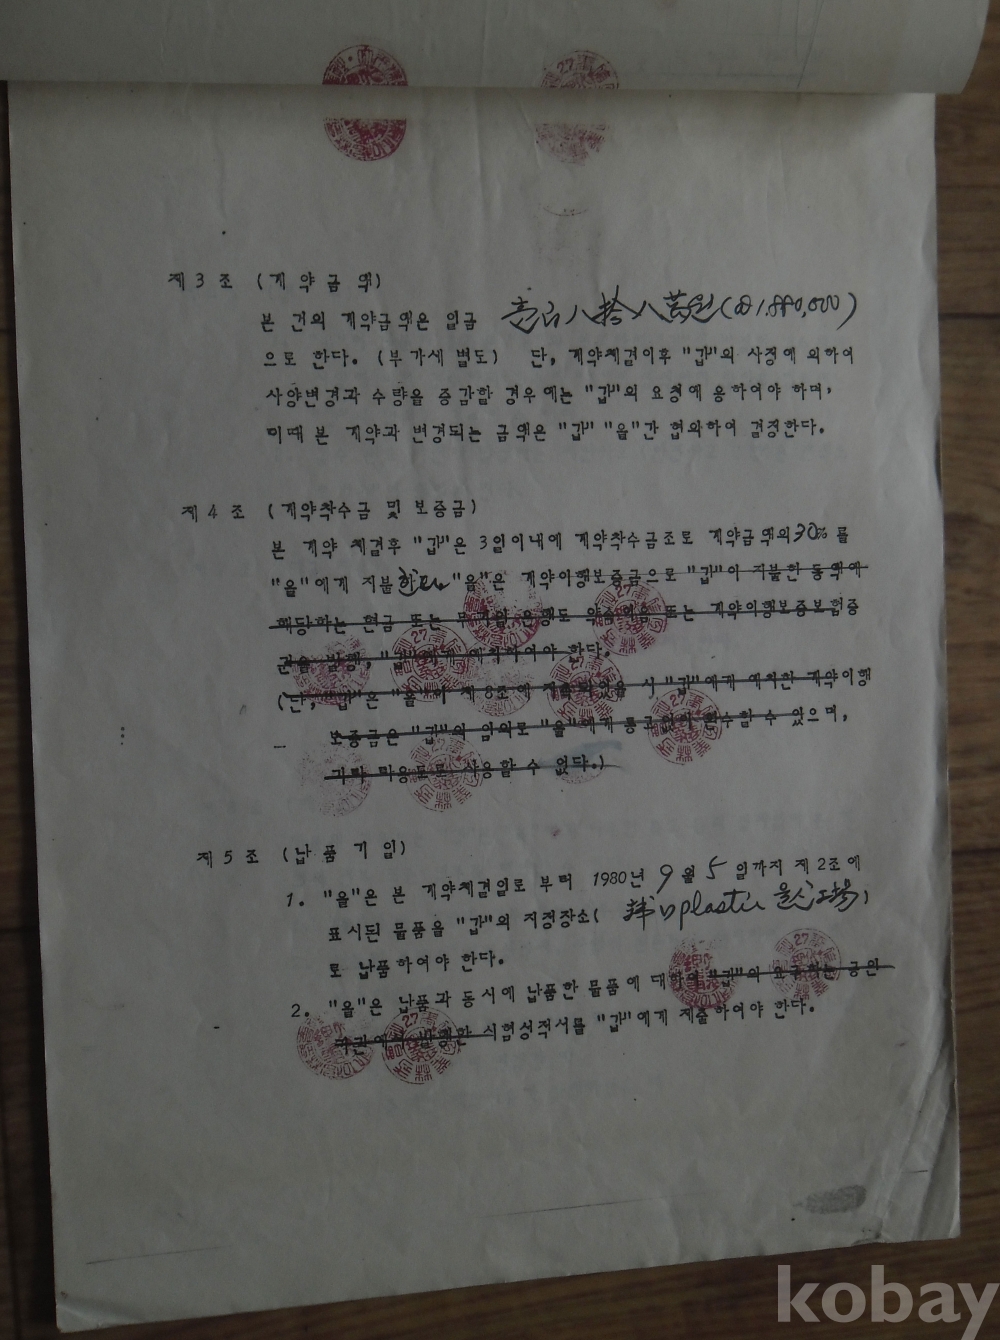 제 3 조 (계 약 금 액)
본 건의 계약금액은 일금 壱百八拾八萬원(₩1,880,000)
으로 한다. (부가세 별도) 단, 계약체결이후 "갑"의 사정에 의하여
사양변경과 수량을 증감할 경우에는 "갑"의 요청에 응하여야 하며,
이때 본 계약과 변경되는 금액은 "갑" "을"간 협의하여 결정한다.
제 4 조 (계약착수금 및 보증금)
본 계약 체결후 "갑"은 3일이내에 계약착수금조로 계약금액의 30% 를
"을"에게 지불한다. "을"은 계약이행보증금으로 "갑"이 지불한 동액에
해당하는 현금 또는 은행도 약속어음 또는 계약이행보증보험증
권을 발행, "갑"에게 예치하여야 한다.
(단, "갑"은 "을"이 제 8조에 시 "갑"에게 예치한 계약이행
보증금은 "갑"의 임의로 "을"에게 통고없이 환수할 수 있으며,
기타 타용도로 사용할 수 없다.)
제 5 조 (납 품 기 일)
1. "을"은 본 계약체결일로 부터 1980년 9 월 5 일까지 제 2조에
표시된 물품을 "갑"의 지정장소( plastic )
로 납품하여야 한다.
2. "을"은 납품과 동시에 납품한 물품에 대하여 "갑"의 요구하는 공인
기관에서 발행한 시험성적서를 "갑"에게 제출하여야 한다.
kobay